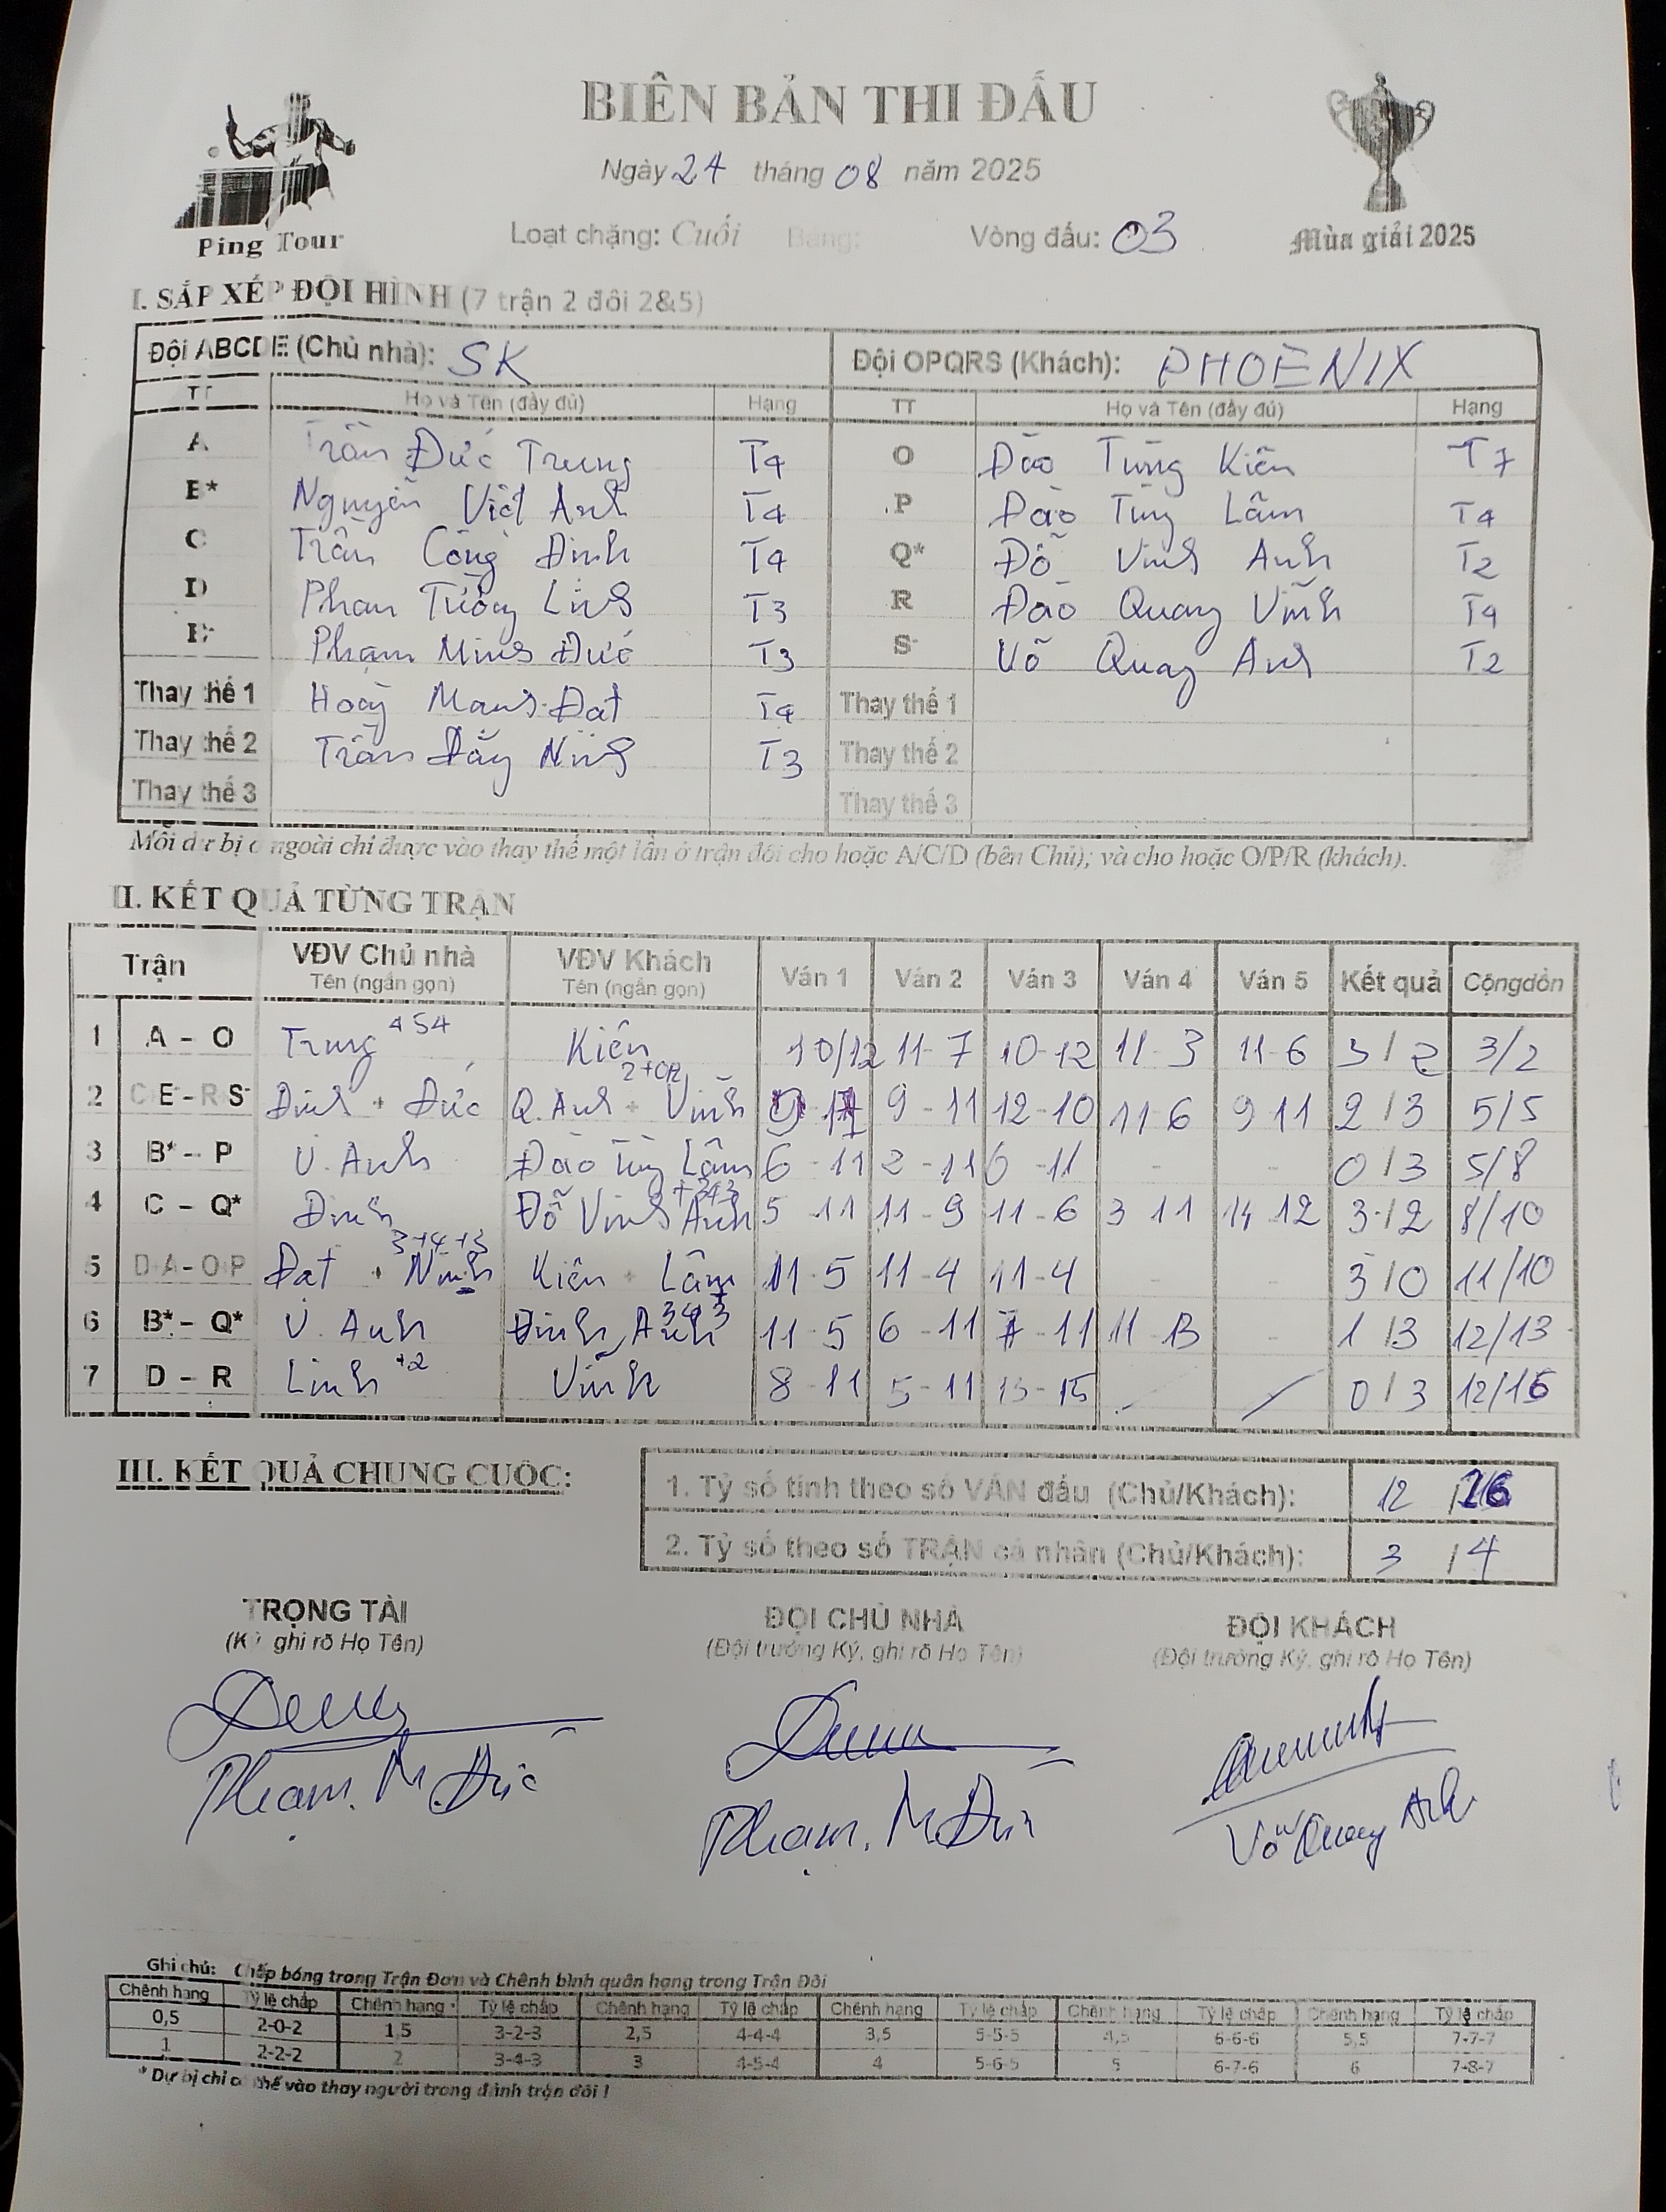 BIÊN BẢN THI ĐẤU
Ngày 24 tháng 08 năm 2025
Ping Tour
Loạt chặng: Cuối Bảng: Vòng đấu: 03
Mùa giải 2025
I. SẮP XẾP ĐỘI HÌNH (7 trận 2 đôi 2&5)
Đội ABCDE (Chủ nhà): SK Đội OPQRS (Khách): PHOENIX
TT Họ và Tên (đầy đủ) Hạng TT Họ và Tên (đầy đủ) Hạng
A Trần Đức Trung T4 O Đào Tùng Kiên T7
B* Nguyễn Việt Anh T4 P Đào Tùng Lâm T4
C Trần Công Định T4 Q* Đỗ Vinh Anh T2
D Phan Tường Linh T3 R Đào Quang Vinh T4
E* Phạm Minh Đức T3 S* Võ Quang Anh T2
Thay thế 1 Hoàng Mạnh Đạt T4 Thay thế 1
Thay thế 2 Trần Đăng Ninh T3 Thay thế 2
Thay thế 3 Thay thế 3
Mỗi dự bị ở ngoài chỉ được vào thay thế một lần ở trận đôi cho hoặc A/C/D (bên Chủ); và cho hoặc O/P/R (khách).
II. KẾT QUẢ TỪNG TRẬN
Trận VĐV Chủ nhà Tên (ngắn gọn) VĐV Khách Tên (ngắn gọn) Ván 1 Ván 2 Ván 3 Ván 4 Ván 5 Kết quả Cộng dồn
1 A - O Trung 454 Kiên 10/12 11-7 10-12 11-3 11-6 3/2 3/2
2 C E - R S Định + Đức Q. Anh + Vinh 2+02 9-11 9-11 12-10 11 6 9 11 2/3 5/5
3 B* - P V. Anh Đào Tùng Lâm 6-11 2-11 6-11 - - 0/3 5/8
4 C - Q* Định Đỗ Vinh Anh +343 5-11 11-9 11-6 3 11 14 12 3/2 8/10
5 D A - O P Đạt + Ninh 3+4+3 Kiên + Lâm 11-5 11-4 11-4 - - 3/0 11/10
6 B* - Q* V. Anh Anh 343 11-5 6-11 7-11 11-13 - 1/3 12/13
7 D - R Linh +2 Vinh 8-11 5-11 13-15 - / 0/3 12/16
III. KẾT QUẢ CHUNG CUỘC:
1. Tỷ số tính theo số VÁN đấu (Chủ/Khách): 12/16
2. Tỷ số theo số TRẬN cá nhân (Chủ/Khách): 3/4
TRỌNG TÀI ĐỘI CHỦ NHÀ ĐỘI KHÁCH
(Ký ghi rõ Họ Tên) (Đội trưởng Ký, ghi rõ Họ Tên) (Đội trưởng Ký, ghi rõ Họ Tên)
Phạm. M. Đức Phạm. M. Đức Võ Quang Anh
Ghi chú: Chấp bóng trong Trận Đơn và Chênh bình quân hạng trong Trận Đôi
Chênh hạng Tỷ lệ chấp Chênh hạng Tỷ lệ chấp Chênh hạng Tỷ lệ chấp Chênh hạng Tỷ lệ chấp Chênh hạng Tỷ lệ chấp Chênh hạng Tỷ lệ chấp
0,5 2-0-2 1,5 3-2-3 2,5 4-4-4 3,5 5-5-5 4,5 6-6-6 5,5 7-7-7
1 2-2-2 2 3-4-3 3 4-5-4 4 5-6-5 5 6-7-6 6 7-8-7
* Dự bị chỉ có thể vào thay người trong đánh trận đôi !